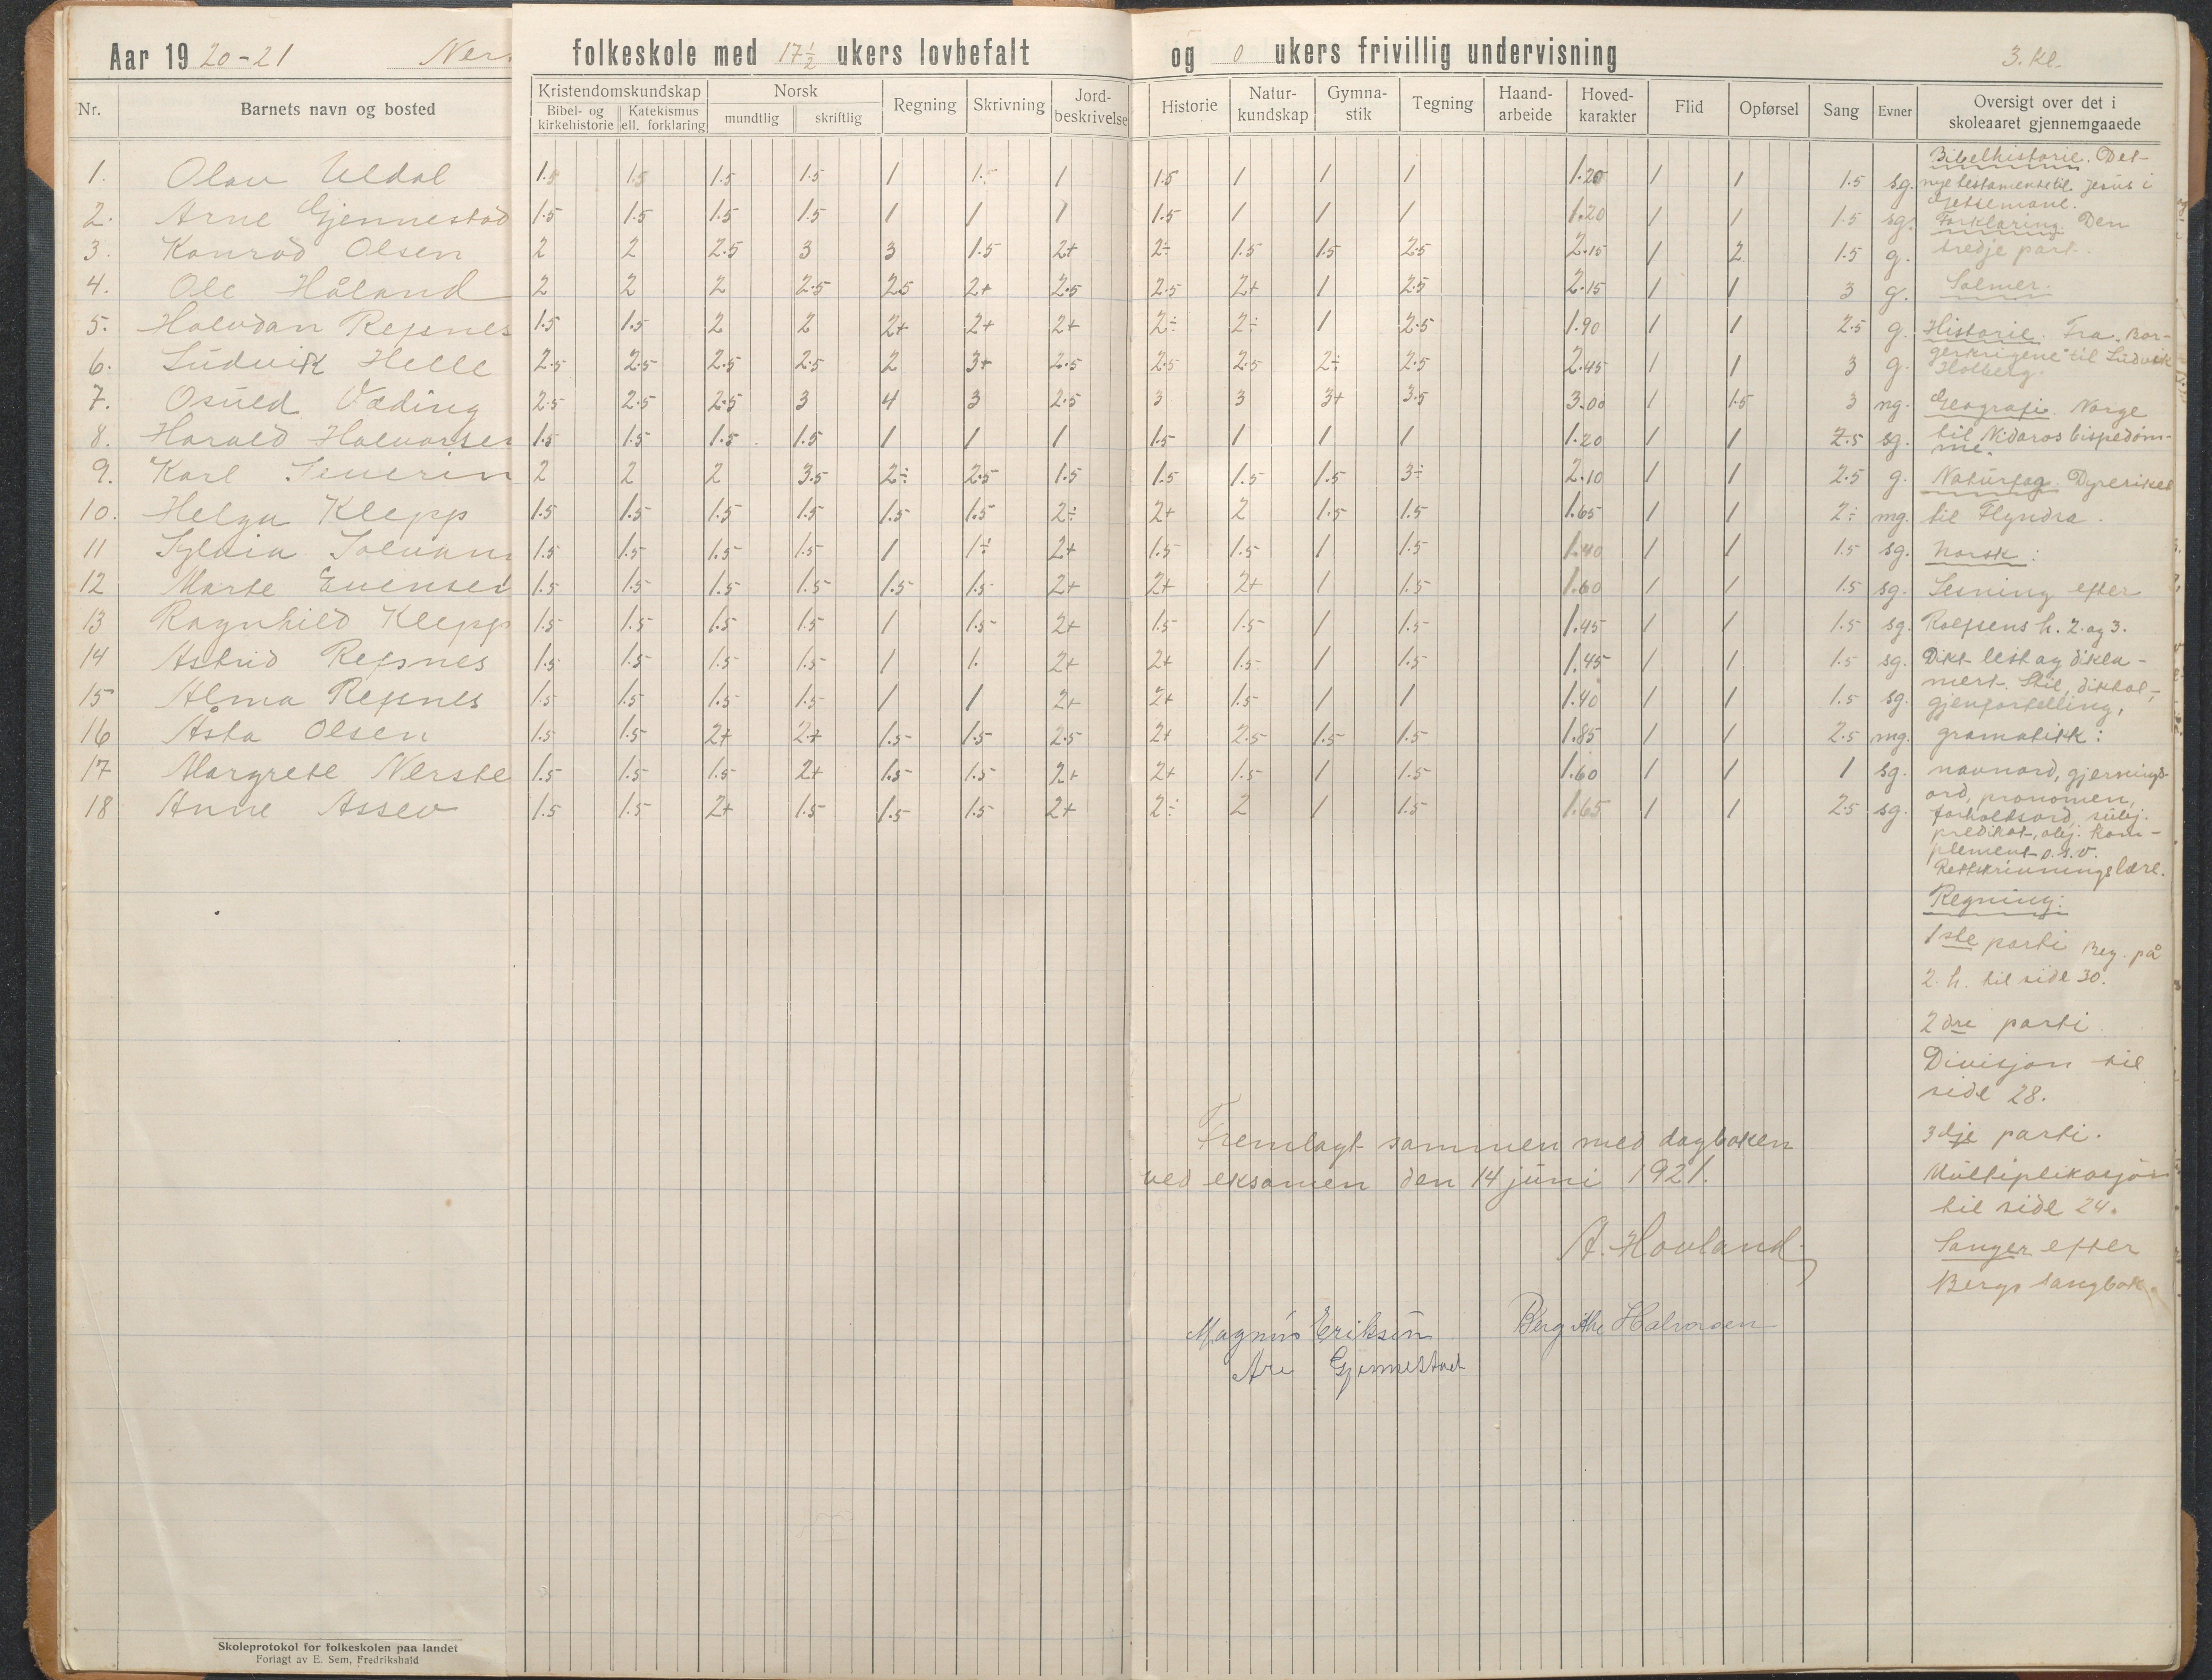 Aar 1920-21 Ners folkeskole med 17 1/2 ukers lovbefalt og 0 ukers frivillig undervisning 3. kl.
Nr. Barnets navn og bosted Kristendomskundskap Bibel- og kirkehistorie Katekismus ell. forklaring Norsk mundtlig skriftlig Regning Skrivning Jord-beskrivelse Historie Natur-kundskap Gymna-stik Tegning Haand-arbeide Hoved-karakter Flid Opførsel Sang Evner Oversigt over det i skoleaaret gjennemgaaede
1. Olav Uldal 1.5 1.5 1.5 1.5 1 1.5 1 1.5 1 1 1 1.20 1 1 1.5 sg.
2. Arne Gjennestad 1.5 1.5 1.5 1.5 1 1 1 1.5 1 1 1 1.20 1 1 1.5 sg.
3. Konrad Olsen 2 2 2.5 3 3 1.5 2+ 2÷ 1.5 1.5 2.5 2.15 1 2 1.5 g.
4. Ole Håland 2 2 2 2.5 2.5 2+ 2.5 2.5 2+ 1 2.5 2.15 1 1 3 g.
5. Halvdan Repsnes 1.5 1.5 2 2 2+ 2+ 2+ 2÷ 2÷ 1 2.5 1.90 1 1 2.5 g.
6. Ludvik Helle 2.5 2.5 2.5 2.5 2 3+ 2.5 2.5 2.5 2÷ 2.5 2.45 1 1 3 g.
7. Osuld Væding 2.5 2.5 2.5 3 4 3 2.5 3 3 3+ 3.5 3.00 1 1.5 3 ng.
8. Harald Halvorsen 1.5 1.5 1.5 1.5 1 1 1 1.5 1 1 1 1.20 1 1 2.5 sg.
9. Karl Severin 2 2 2 3.5 2÷ 2.5 1.5 1.5 1.5 1.5 3÷ 2.10 1 1 2.5 g.
10. Helga Klepp 1.5 1.5 1.5 1.5 1.5 1.5 2÷ 2+ 2 1.5 1.5 1.65 1 1 2÷ mg.
11 Sylvia Solvan 1.5 1.5 1.5 1.5 1 1÷ 2+ 1.5 1.5 1 1.5 1.40 1 1 1.5 sg.
12 Marte Evensen 1.5 1.5 1.5 1.5 1.5 1.5 2+ 2+ 2+ 1 1.5 1.60 1 1 1.5 sg.
13 Ragnhild Klepp 1.5 1.5 1.5 1.5 1 1.5 2+ 1.5 1.5 1 1.5 1.45 1 1 1.5 sg.
14 Astrid Repsnes 1.5 1.5 1.5 1.5 1 1. 2+ 2+ 1.5 1 1.5 1.45 1 1 1.5 sg.
15 Alma Repsnes 1.5 1.5 1.5 1.5 1 1 2+ 2+ 1.5 1 1 1.40 1 1 1.5 sg.
16 Åsta Olsen 1.5 1.5 2+ 2+ 1.5 1.5 2.5 2+ 2.5 1.5 1.5 1.85 1 1 2.5 mg.
17 Margrete Nerste 1.5 1.5 1.5 2+ 1.5 1.5 2+ 2+ 1.5 1 1.5 1.60 1 1 1 sg.
18 Anne Assev 1.5 1.5 2+ 1.5 1.5 1.5 2+ 2÷ 2 1 1.5 1.65 1 1 2.5 sg.
Bibelhistorie. Det
nye testamente til Jesus i
Getsemane.
Forklaring. Den
tredje part.
Salmer.
Historie. Fra "Bor-
gerkrigene" til Ludvik
Holberg.
Geografi. Norge
til Nidaros bispedøm-
me.
Naturfag. Dyreriket
til Flyndra.
Norsk:
Lesning efter
Rolfsens h. 2. og 3.
Dikt lest og dekla-
mert. Stil, diktat,
gjenfortelling,
gramatikk:
navnord, gjernings-
ord, pronomen,
forholdsord, subj.
predikat, obj. kom-
plement o.s.v.
Rettskrivningslære.
Regning:
1ste parti Beg. på
2. h. til side 30.
2dre parti
Divisjon til
side 28.
3dje parti.
Multiplikasjon
til side 24.
Sanger efter
Bergs sangbok.
Fremlagt sammen med dagboken
ved eksamen den 14 juni 1921.
A. Hovland
Magnus Eriksen Bergithe Halvorsen
Are Gjennestad
Skoleprotokol for folkeskolen paa landet
Forlagt av E. Sem, Fredrikshald